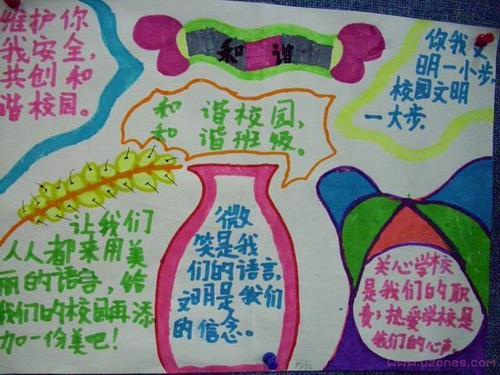 维护你
我安全,
共创和
谐校园。
和 谐
你我文
明一小步
校园文明
一大步.
和 谐校园,
和 谐班级.
让我们
人人都来用美
丽的语言,给
我们的校园再添
加一份美吧!
微
笑是我
们的语言,
文明是我们
的信念。
关心学校
是我们的职
责;热爱学校是
我们的心声.
www.uzones.com